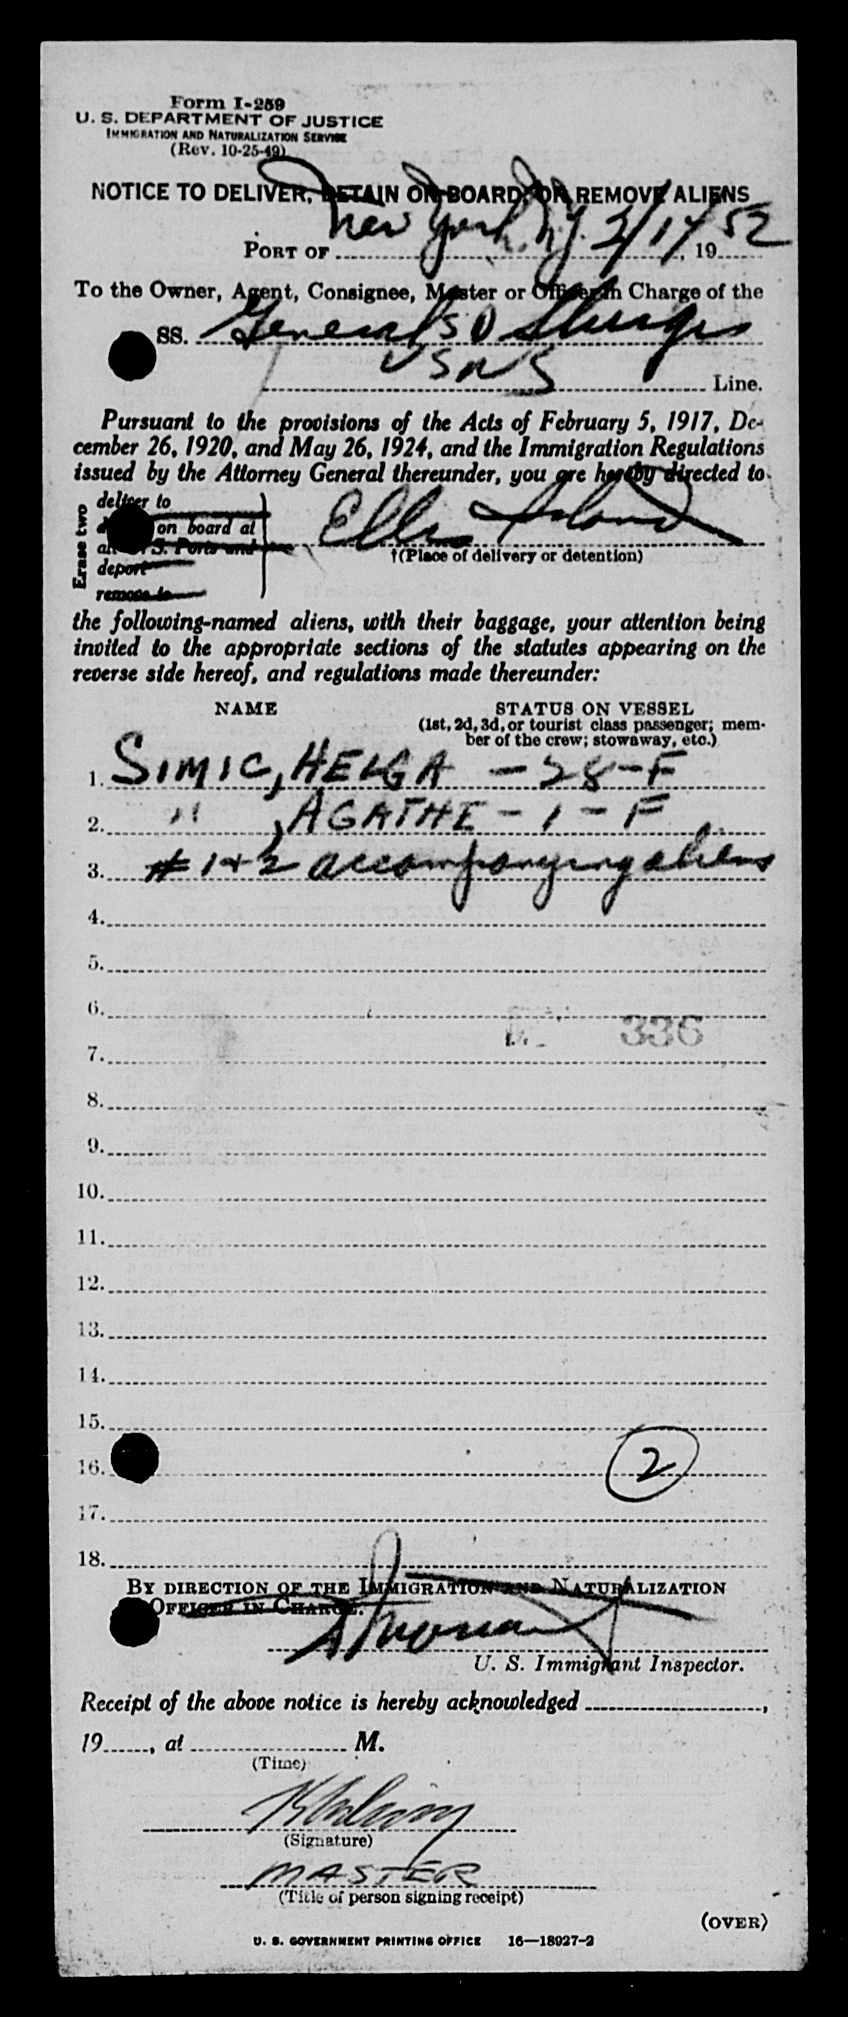 Form I-259
U. S. DEPARTMENT OF JUSTICE
IMMIGRATION AND NATURALIZATION SERVICE
(Rev. 10-25-49)
NOTICE TO DELIVER, DETAIN ON BOARD, OR REMOVE ALIENS
PORT OF New York, N.Y. 2/17, 1952
To the Owner, Agent, Consignee, Master or Officer in Charge of the
SS. General S D Sturgis
USNS Line.
Pursuant to the provisions of the Acts of February 5, 1917, De-
cember 26, 1920, and May 26, 1924, and the Immigration Regulations
issued by the Attorney General thereunder, you are hereby directed to
Erase two
deliver to
on board at
all U. S. Ports and
deport
remove to
Ellis Island
†(Place of delivery or detention)
the following-named aliens, with their baggage, your attention being
invited to the appropriate sections of the statutes appearing on the
reverse side hereof, and regulations made thereunder:
NAME STATUS ON VESSEL
(1st, 2d, 3d, or tourist class passenger; mem-
ber of the crew; stowaway, etc.)
1. SIMIC, HELGA - 28 - F
2. " , AGATHE - 1 - F
3. # 1 + 2 accompanying aliens
4.
5.
6.
336
7.
8.
9.
10.
11.
12.
13.
14.
15.
16. 2
17.
18.
BY DIRECTION OF THE IMMIGRATION AND NATURALIZATION
OFFICER IN CHARGE.
U. S. Immigrant Inspector.
Receipt of the above notice is hereby acknowledged ,
19 , at M.
(Time)
(Signature)
MASTER
(Title of person signing receipt)
(OVER)
U. S. GOVERNMENT PRINTING OFFICE 16—18927-2